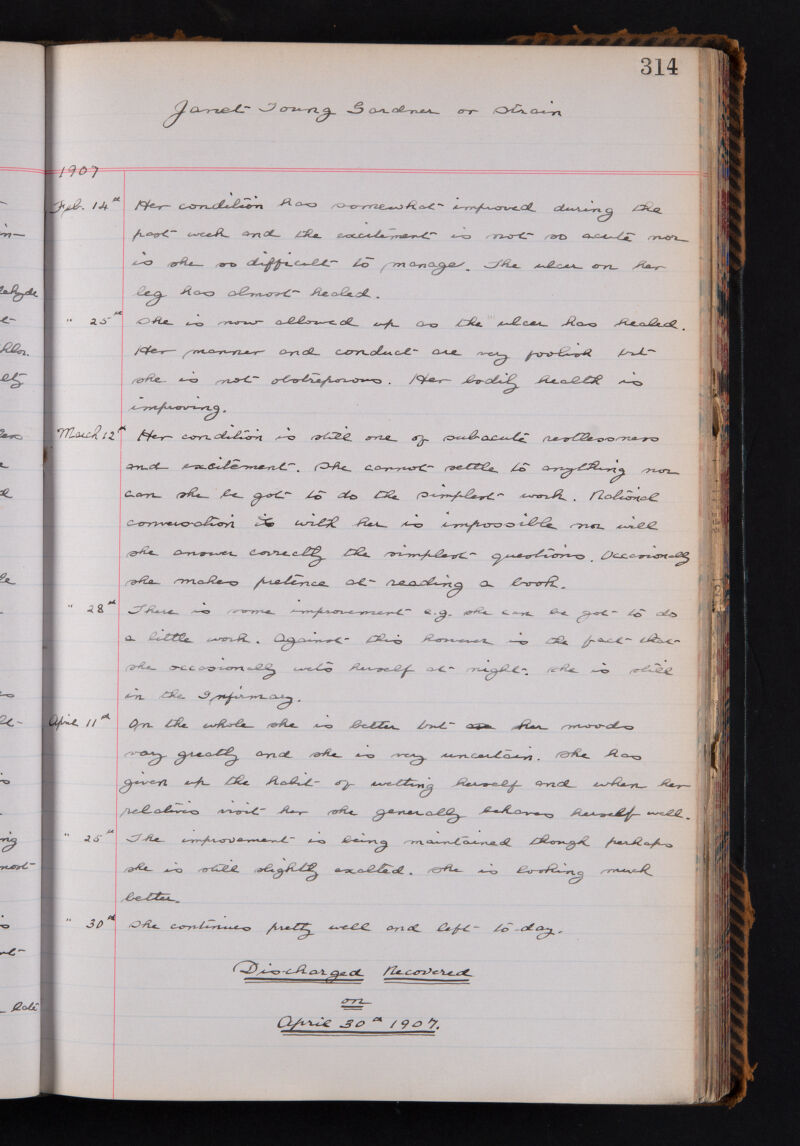 314
Janet Young Gardner or Strain
1907
Feb. 14th Her condition has somewhat improved during the
past week and the excitement is not so acute nor
is she so difficult to manage. The ulcer on her
leg has almost healed.
" 25th She is now allowed up as the ulcer has healed.
Her manner and conduct are very foolish but
she is not obstreporous. Her bodily health is
improving.
March 12th Her condition is still one of subacute restlessness
and excitement. She cannot settle to anything nor
can she be got to do the simplest work. Rational
conversation is with her is impossible nor will
she answer correctly the simplest questions. Occasionally
she makes pretence at reading a book.
" 28th There is some improvement e.g. she can be got to do
a little work. Against this however is the fact that
she occasionally wets herself at night. She is still
in the Infirmary.
April 11th On the whole she is better but her moods
vary greatly and she is very uncertain. She has
given up the habit of wetting herself and when her
relatives visit her she generally behaves herself well.
" 25th The improvement is being maintained though perhaps
she is still slightly exalted. She is looking much
better.
" 30th She continues pretty well and left to-day.
Discharged Recovered
on
April 30th 1907.